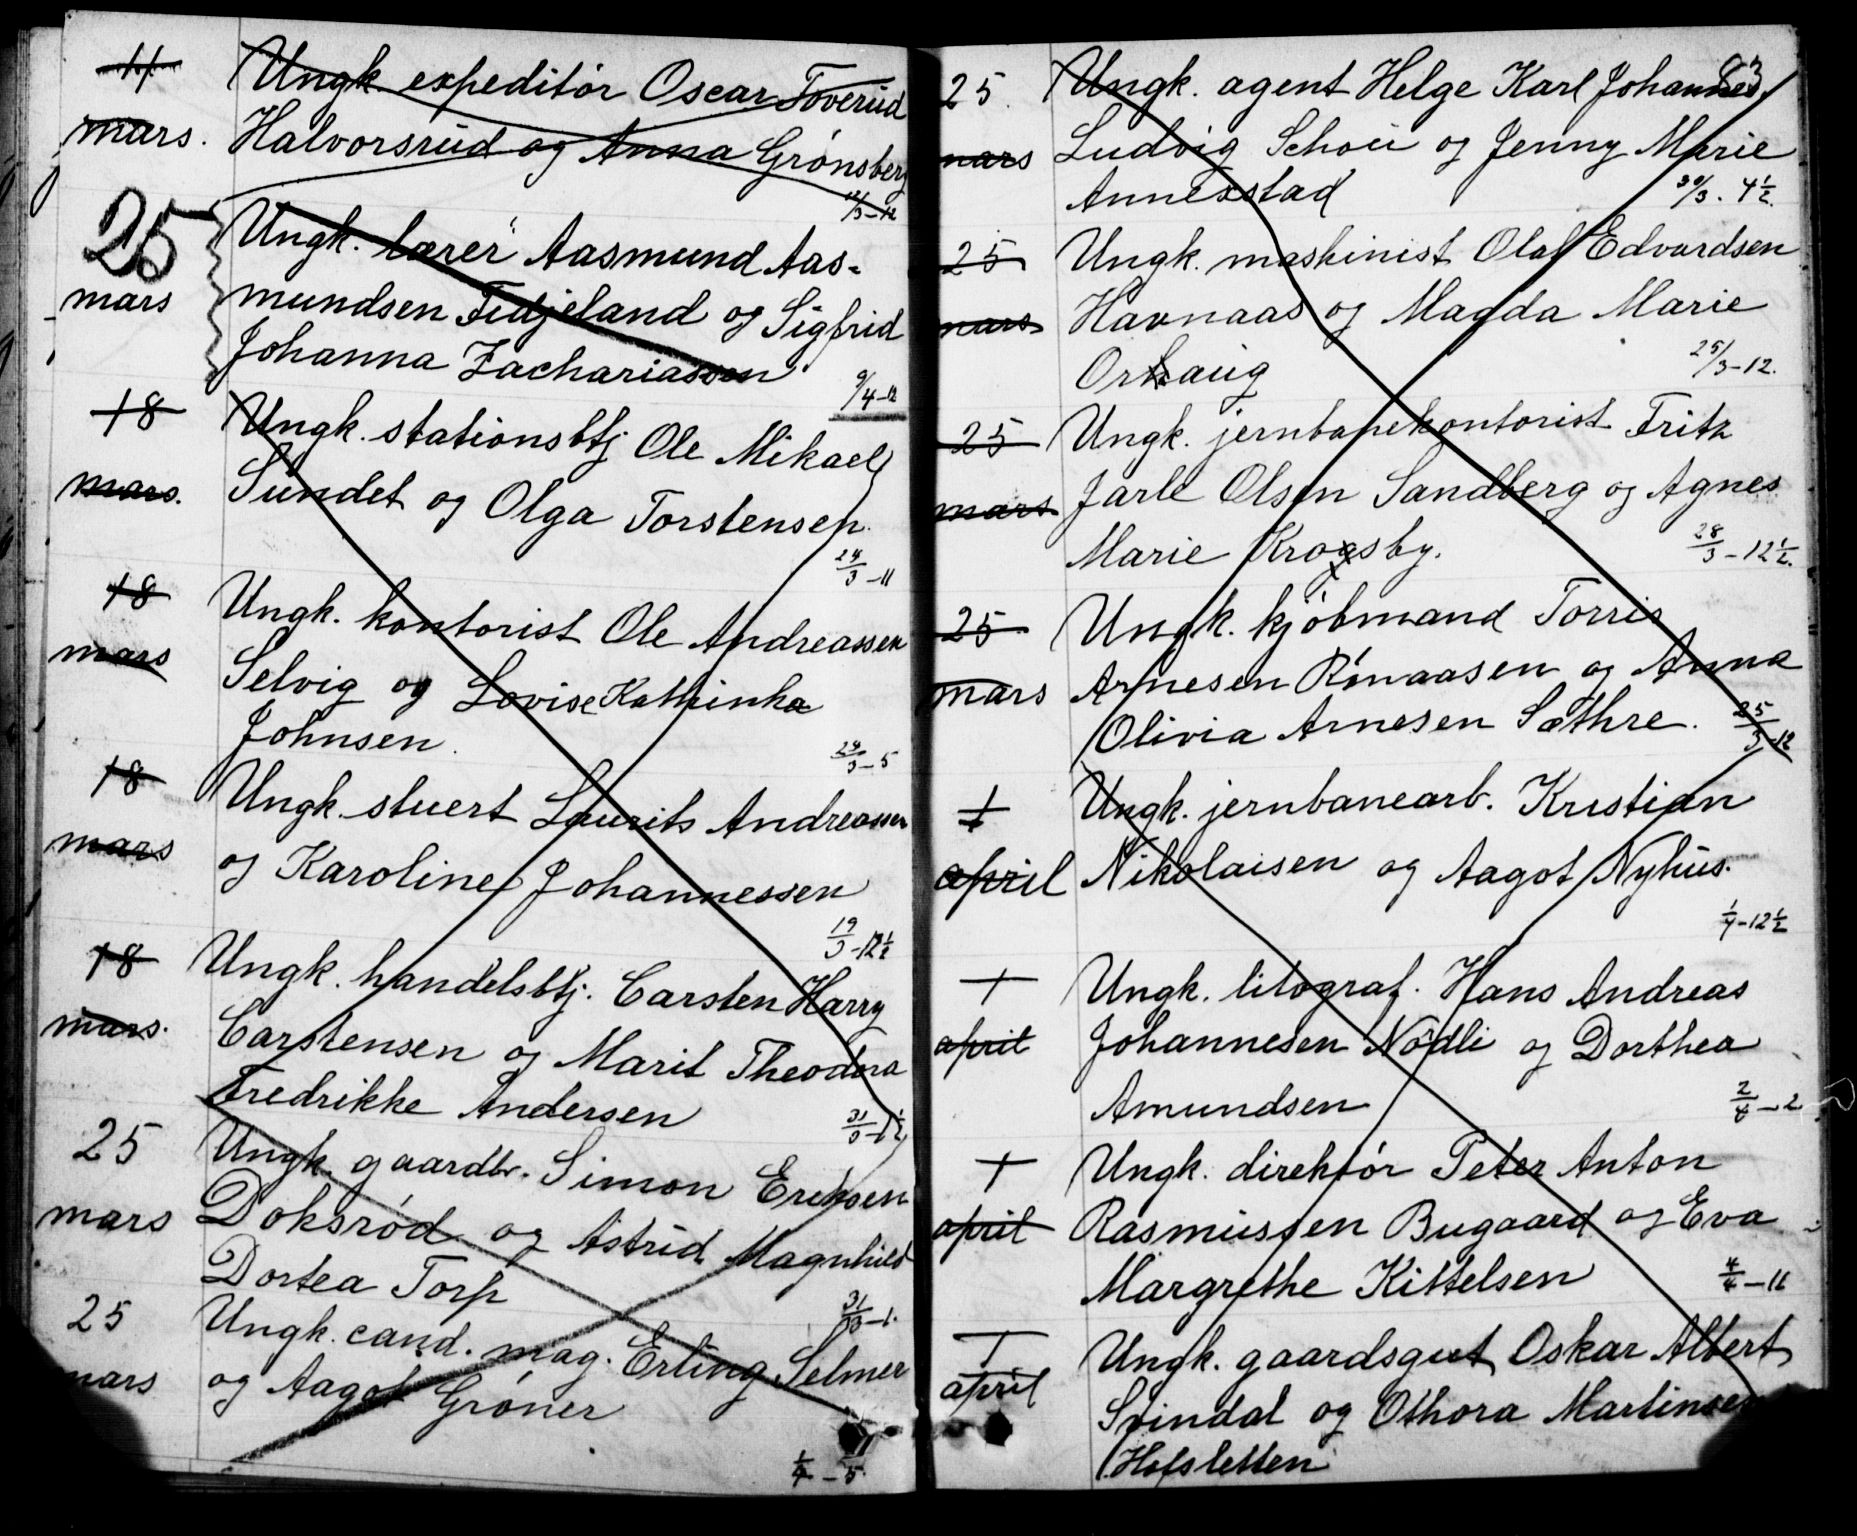 11 Ungk. expeditør Oscar Toverud
mars. Halvorsrud og Anna Grønsberg
25 Ungk. lærer Aasmund Aas-
mars mundsen Fidjeland og Sigfrid
Johanna Zachariassen
9/4-12
18 Ungk. stationsbtj Ole Mikael
mars. Sundet og Olga Torstensen.
24/3-11
18 Ungk. kontorist Ole Andreassen
mars Selvig og Lovise Kathinka
Johnsen.
24/3-5
18 Ungk. stuert Laurits Andreassen
mars og Karoline Johannessen
19/3-12½
18 Ungk. handelsbtj. Carsten Harry
mars. Carstensen og Marit Theodora
Fredrikke Andersen
25 Ungk. gaardbr. Simon Eriksen
mars Doksrød og Astrid Magnhild
Dortea Torp
31/3-1.
25 Ungk. cand. mag. Erling Selmer
mars og Aagot Grøner
1/4-5.
83
25. Ungk. agent Helge Karl Johannes
mars Ludvig Schou og Jenny Marie
Annexstad 30/3. 4½.
25 Ungk. maskinist Olaf Edvardsen
mars Havnaas og Magda Marie
Orhaug 25/3-12.
25 Ungk. jernbanekontorist Fritz
mars Jarle Olsen Sandberg og Agnes
Marie Krogsby. 28/3-12½.
25 Ungk. kjøbmand Torris
mars Arnesen Rønaasen og Anna
Olivia Arnesen Sæthre. 25/3-12
1 Ungk. jernbanearb. Kristian
april Nikolaisen og Aagot Nyhus.
1/4-12½
1 Ungk. litograf. Hans Andreas
april Johannesen Nødli og Dorthea
Amundsen 2/4-2
1 Ungk. direktør Peter Anton
april Rasmussen Bugaard og Eva
Margrethe Kittelsen 4/4-11
1 Ungk. gaardsgut Oskar Albert
april Svindal og Othora Martinsen
Hofsletten